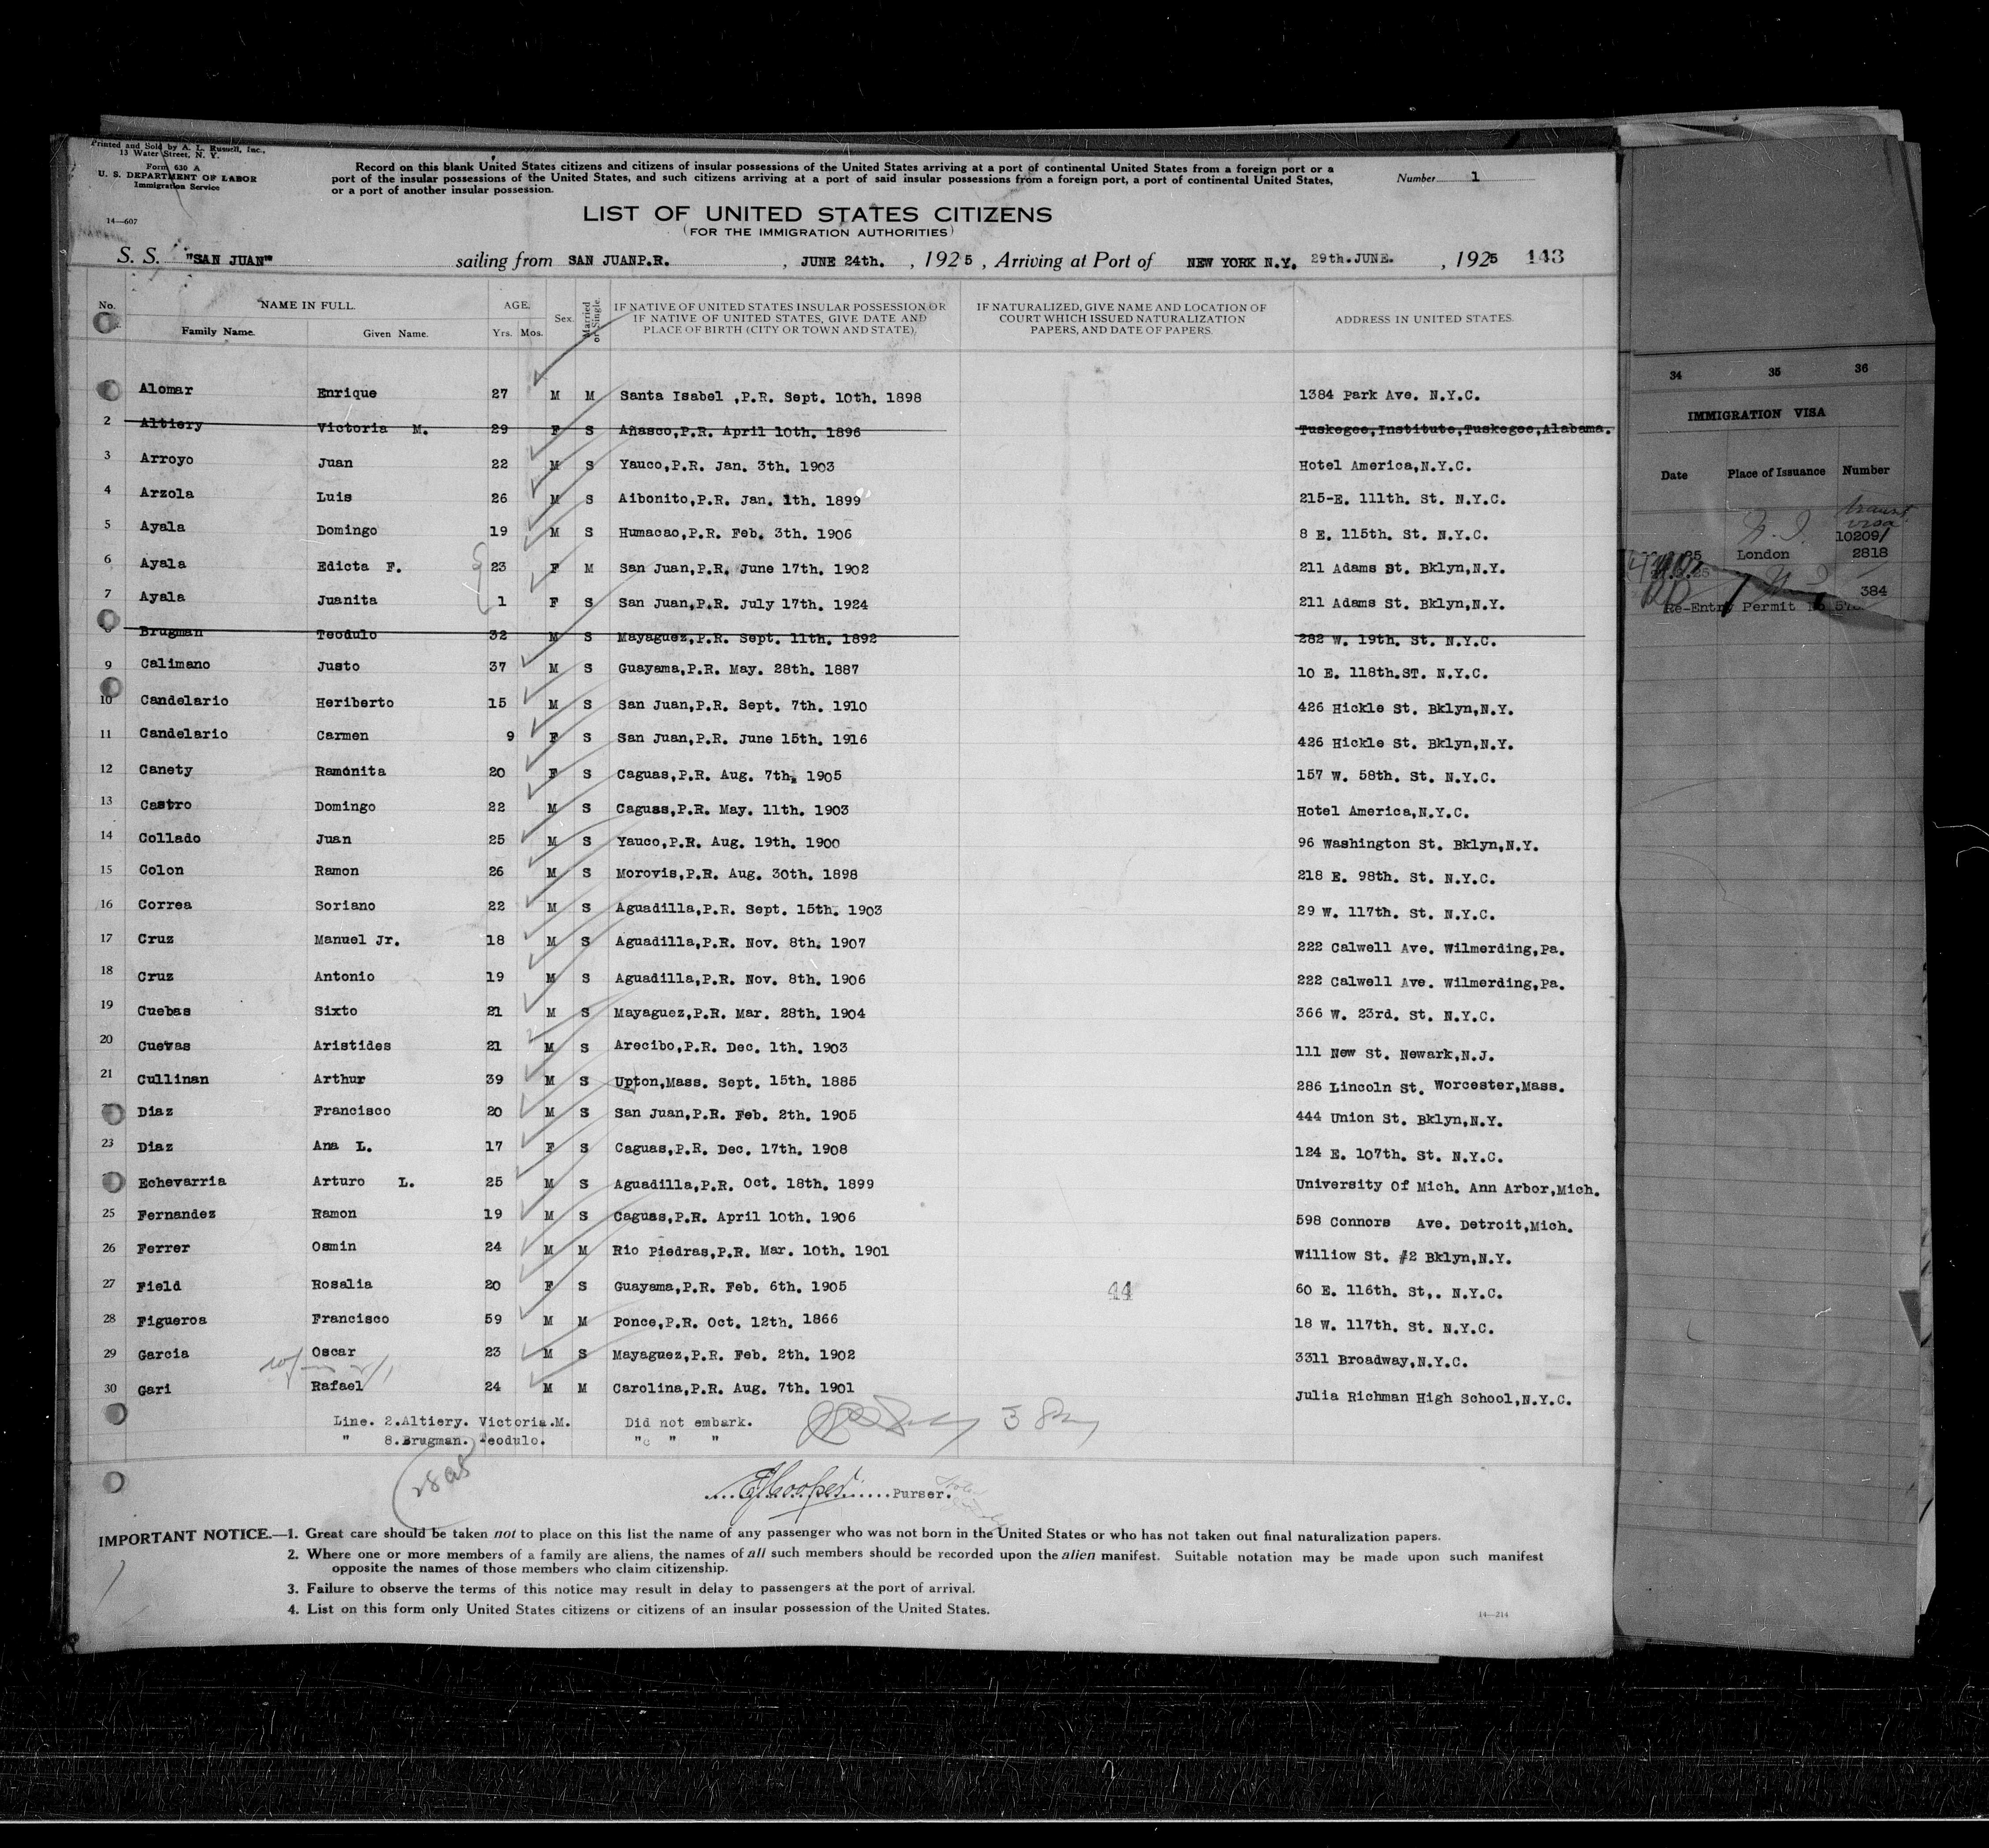 Printed and Sold by A. L. Russell, Inc.,
13 Water Street, N. Y.
Form 630 A
U. S. DEPARTMENT OF LABOR
Immigration Service
14—607
Record on this blank United States citizens and citizens of insular possessions of the United States arriving at a port of continental United States from a foreign port or a
port of the insular possessions of the United States, and such citizens arriving at a port of said insular possessions from a foreign port, a port of continental United States,
or a port of another insular possession.
Number 1
LIST OF UNITED STATES CITIZENS
(FOR THE IMMIGRATION AUTHORITIES)
S. S. "SAN JUAN" sailing from SAN JUANP.R. , JUNE 24th. , 1925 , Arriving at Port of NEW YORK N.Y. 29th.JUNE. , 1925 143
No. NAME IN FULL. Family Name. Given Name. AGE. Yrs. Mos. Sex. Married or Single. IF NATIVE OF UNITED STATES INSULAR POSSESSION OR IF NATIVE OF UNITED STATES, GIVE DATE AND PLACE OF BIRTH (CITY OR TOWN AND STATE). IF NATURALIZED, GIVE NAME AND LOCATION OF COURT WHICH ISSUED NATURALIZATION PAPERS, AND DATE OF PAPERS. ADDRESS IN UNITED STATES.
Alomar Enrique 27 M M Santa Isabel ,P.R. Sept. 10th. 1898 1384 Park Ave. N.Y.C.
2 Altiery Victoria M. 29 F S Añasco,P.R. April 10th. 1896 Tuskegee,Institute,Tuskegee,Alabama.
3 Arroyo Juan 22 M S Yauco,P.R. Jan. 3th. 1903 Hotel America,N.Y.C.
4 Arzola Luis 26 M S Aibonito,P.R. Jan. 1th. 1899 215-E. 111th. St. N.Y.C.
5 Ayala Domingo 19 M S Humacao,P.R. Feb. 3th. 1906 8 E. 115th. St. N.Y.C.
6 Ayala Edicta F. 23 F M San Juan,P.R. June 17th. 1902 211 Adams St. Bklyn,N.Y.
7 Ayala Juanita 1 F S San Juan,P.R. July 17th. 1924 211 Adams St. Bklyn,N.Y.
Brugman Teodulo 32 M S Mayaguez,P.R. Sept. 11th. 1892 282 W. 19th. St. N.Y.C.
9 Calimano Justo 37 M S Guayama,P.R. May. 28th. 1887 10 E. 118th.ST. N.Y.C.
10 Candelario Heriberto 15 M S San Juan,P.R. Sept. 7th. 1910 426 Hickle St. Bklyn,N.Y.
11 Candelario Carmen 9 F S San Juan,P.R. June 15th. 1916 426 Hickle St. Bklyn,N.Y.
12 Canety Ramonita 20 F S Caguas,P.R. Aug. 7th. 1905 157 W. 58th. St. N.Y.C.
13 Castro Domingo 22 M S Caguas,P.R. May. 11th. 1903 Hotel America,N.Y.C.
14 Collado Juan 25 M S Yauco,P.R. Aug. 19th. 1900 96 Washington St. Bklyn,N.Y.
15 Colon Ramon 26 M S Morovis,P.R. Aug. 30th. 1898 218 E. 98th. St. N.Y.C.
16 Correa Soriano 22 M S Aguadilla,P.R. Sept. 15th. 1903 29 W. 117th. St. N.Y.C.
17 Cruz Manuel Jr. 18 M S Aguadilla,P.R. Nov. 8th. 1907 222 Calwell Ave. Wilmerding,Pa.
18 Cruz Antonio 19 M S Aguadilla,P.R. Nov. 8th. 1906 222 Calwell Ave. Wilmerding,Pa.
19 Cuebas Sixto 21 M S Mayaguez,P.R. Mar. 28th. 1904 366 W. 23rd. St. N.Y.C.
20 Cuevas Aristides 21 M S Arecibo,P.R. Dec. 1th. 1903 111 New St. Newark,N.J.
21 Cullinan Arthur 39 M S Upton,Mass. Sept. 15th. 1885 286 Lincoln St. Worcester,Mass.
Diaz Francisco 20 M S San Juan,P.R. Feb. 2th. 1905 444 Union St. Bklyn,N.Y.
23 Diaz Ana L. 17 F S Caguas,P.R. Dec. 17th. 1908 124 E. 107th. St. N.Y.C.
Echevarria Arturo L. 25 M S Aguadilla,P.R. Oct. 18th. 1899 University Of Mich. Ann Arbor,Mich.
25 Fernandez Ramon 19 M S Caguas,P.R. April 10th. 1906 598 Connors Ave. Detroit,Mich.
26 Ferrer Osmin 24 M M Rio Piedras,P.R. Mar. 10th. 1901 Williow St. #2 Bklyn,N.Y.
27 Field Rosalia 20 F S Guayama,P.R. Feb. 6th. 1905 44 60 E. 116th. St,. N.Y.C.
28 Figueroa Francisco 59 M M Ponce,P.R. Oct. 12th. 1866 18 W. 117th. St. N.Y.C.
29 Garcia Oscar 23 M S Mayaguez,P.R. Feb. 2th. 1902 3311 Broadway,N.Y.C.
30 Gari Rafael 24 M M Carolina,P.R. Aug. 7th. 1901 Julia Richman High School,N.Y.C.
Line. 2.Altiery. Victoria.M. Did not embark.
" 8.Brugman. Teodulo. " " "
Purser.
IMPORTANT NOTICE.—1. Great care should be taken not to place on this list the name of any passenger who was not born in the United States or who has not taken out final naturalization papers.
2. Where one or more members of a family are aliens, the names of all such members should be recorded upon the alien manifest. Suitable notation may be made upon such manifest
opposite the names of those members who claim citizenship.
3. Failure to observe the terms of this notice may result in delay to passengers at the port of arrival.
4. List on this form only United States citizens or citizens of an insular possession of the United States.
14—214
34 35 36
IMMIGRATION VISA
Date Place of Issuance Number
transit
visa
10209/
London 2818
384
Re-Entry Permit